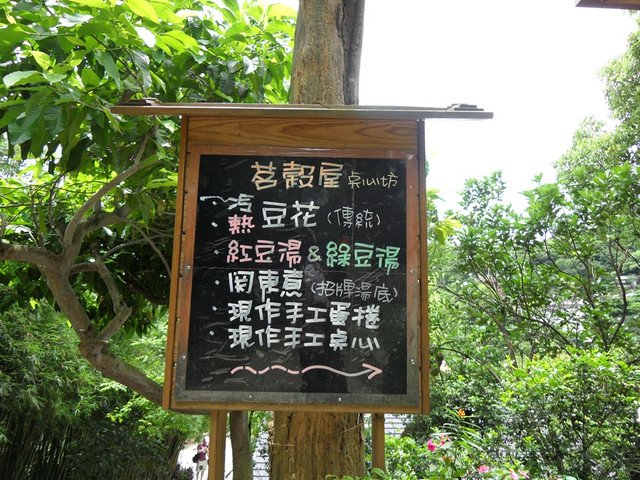 茗穀屋 点心坊
冷
·熱 豆花(傳統)
·紅豆湯&綠豆湯
·関東煮(招牌湯底)
·現作手工蛋捲
·現作手工点心